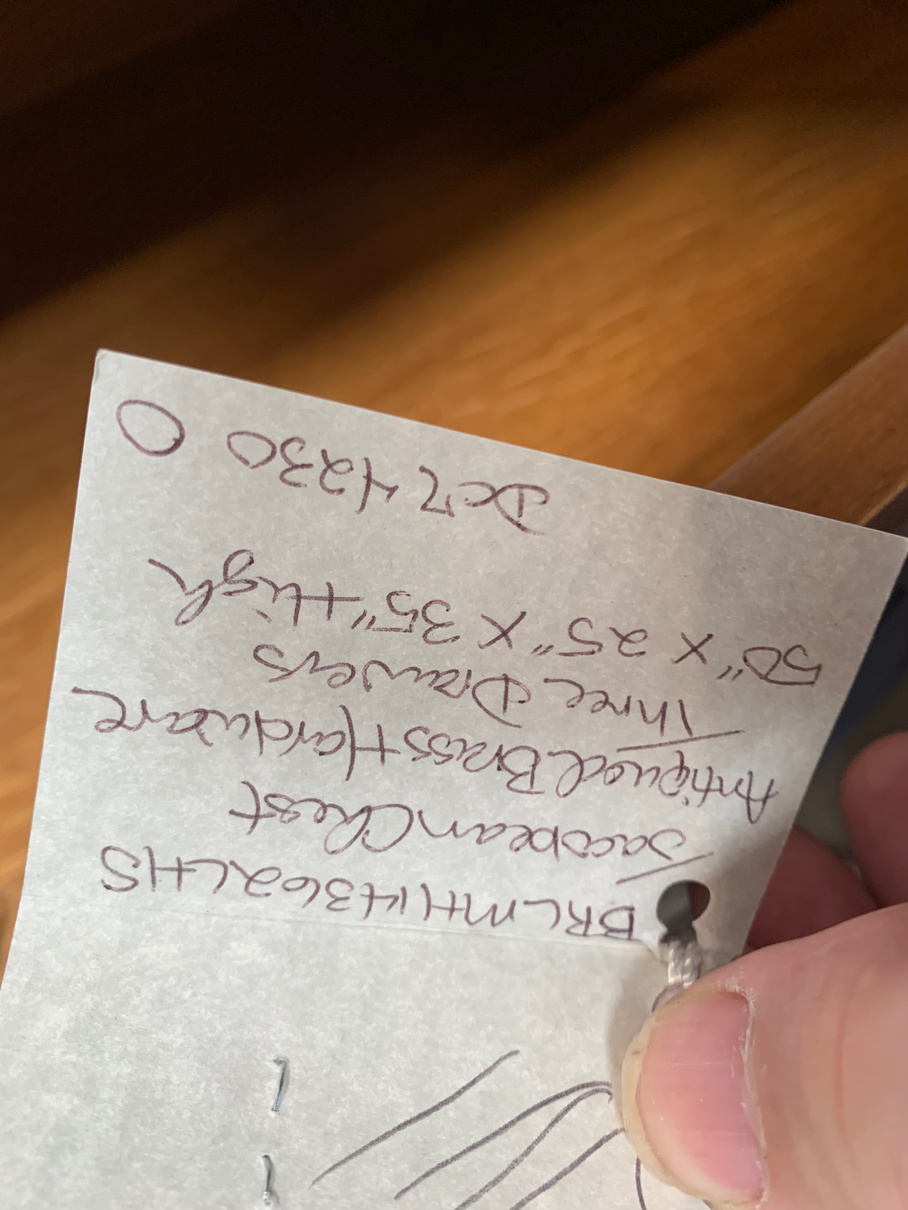 BRLMH14362LHS
Jacobean Chest
Antiqued Brass Hardware
Three Drawers
50" X 25" X 35" High
DCZ 4230 O